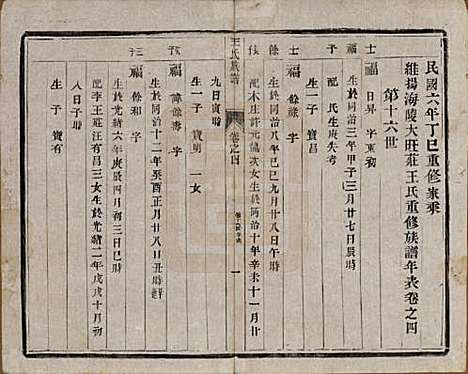 民國六年丁巳重修家乘
維揚海陵大旺莊王氏重修族譜年表卷之四
第十六世
士福 日昇 字東嶺
生於同治三年甲子三月廿七辰時
子 配 氏生庚失考
士福 餘祿 字
生於同治八年己巳九月廿八日午時
配木庄許元儀次女生於同治十年辛未十一月廿
王氏族譜
卷之四
一
九日寅時
生一子 寶明 一女
福 餘壽 字
生於同治十二年癸酉正月廿八日丑時
福 餘和 字
生於光緒六年庚辰四月初三日巳時
配李王莊汪有昌三女生於光緒二年戊戌十月初
八日子時
生子 寶